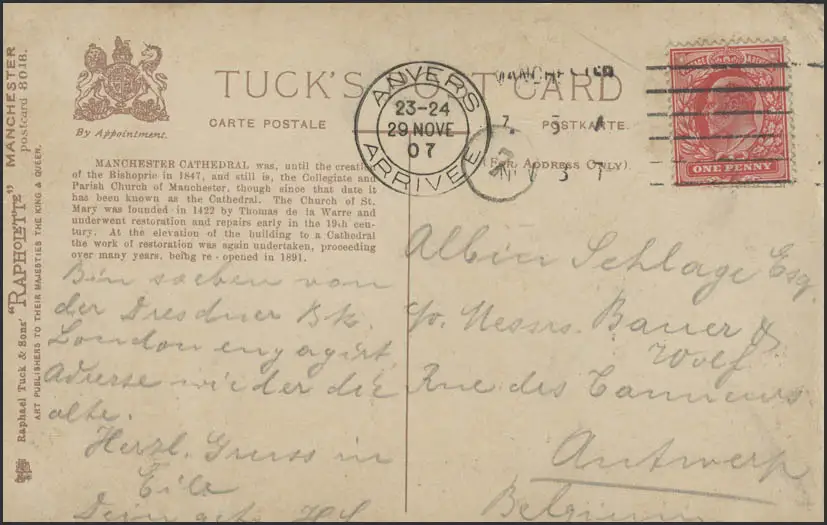 TUCK'S POST CARD
By Appointment.
CARTE POSTALE
POSTKARTE.
(FOR ADDRESS ONLY)
MANCHESTER CATHEDRAL was, until the creation
of the Bishopric in 1847, and still is, the Collegiate and
Parish Church of Manchester, though since that date it
has been known as the Cathedral. The Church of St.
Mary was founded in 1422 by Thomas de la Warre and
underwent restoration and repairs early in the 19th cen-
tury. At the elevation of the building to a Cathedral
the work of restoration was again undertaken, proceeding
over many years, being re-opened in 1891.
Bin soeben von
der Dresdner Bk.
London engagirt,
Adresse wieder die
alte.
Herzl. Gruss in
Eile
Dein
Albin Schlage Esq.
c/o. Messrs. Bauer &
Wolf
Rue des Tanneurs
Antwerp
Belgium
ANVERS
23-24
29 NOVE
07
ARRIVEE
MANCHESTER
ONE PENNY
Raphael Tuck & Sons' "RAPHOLETTE" MANCHESTER
postcard 8018.
ART PUBLISHERS TO THEIR MAJESTIES THE KING & QUEEN.